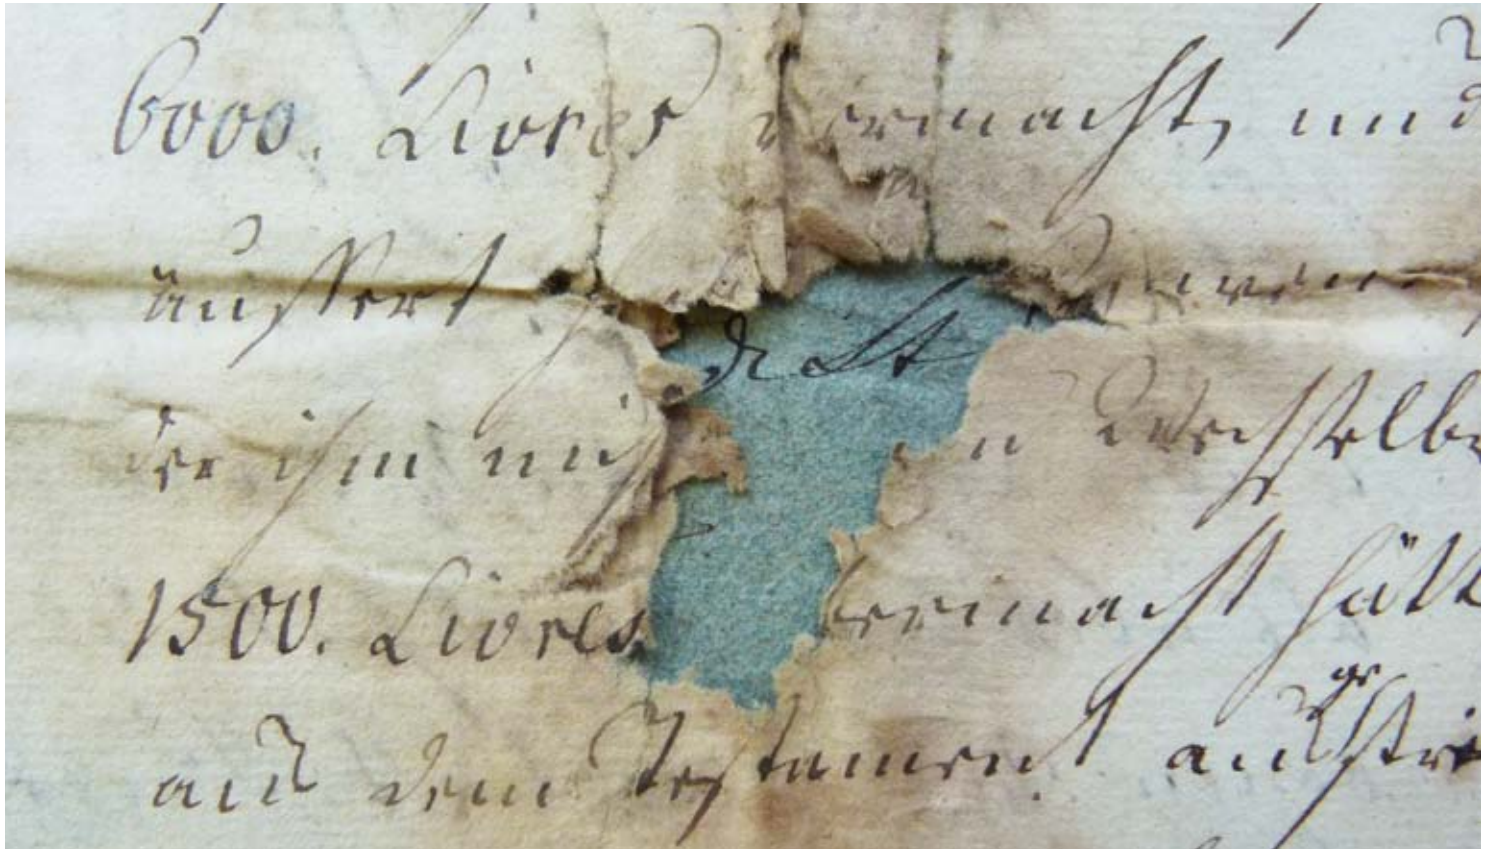 6000. Livres vermacht, und
äussert
de St
der ihm in Wechsselbr
1500. Livres vermacht hätt
aus dem Testament ausgestri